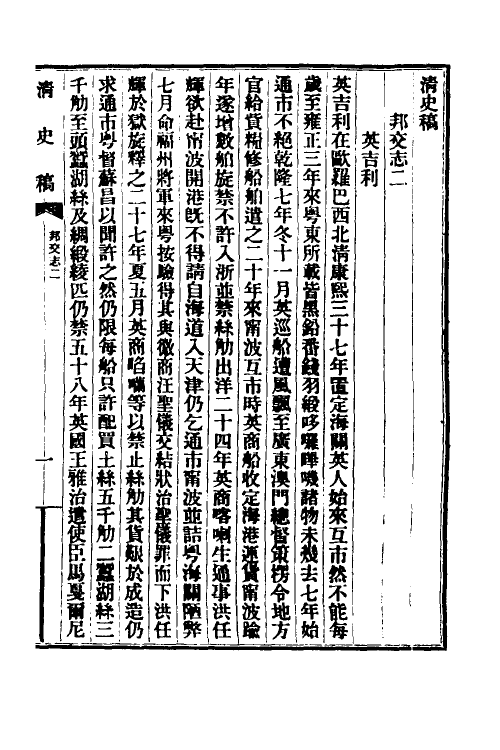 清史稿
邦交志二
英吉利
英吉利在歐羅巴西北清康熙三十七年置定海關英人始來互市然不能每
歲至雍正三年來粵東所載皆黑鉛番錢羽緞哆囉嗶嘰諸物未幾去七年始
通市不絕乾隆七年冬十一月英巡船遭風飄至廣東澳門總督策楞令地方
官給貲糧修船舶遣之二十年來甯波互市時英商船收定海港運貨甯波踰
年遂增數舶旋禁不許入浙並禁絲觔出洋二十四年英商喀喇生通事洪任
輝欲赴甯波開港旣不得請自海道入天津仍乞通市甯波並訐粵海關陋弊
七月命福州將軍來粵按驗得其與徽商汪聖儀交結狀治聖儀罪而下洪任
輝於獄旋釋之二十七年夏五月英商𠵽囒等以禁止絲觔其貨艱於成造仍
求通市粵督蘇昌以聞許之然仍限每船只許配買土絲五千觔二蠶湖絲三
千觔至頭蠶湖絲及綢緞綾匹仍禁五十八年英國王雅治遣使臣馬戛爾尼
清史稿
邦交志二
一